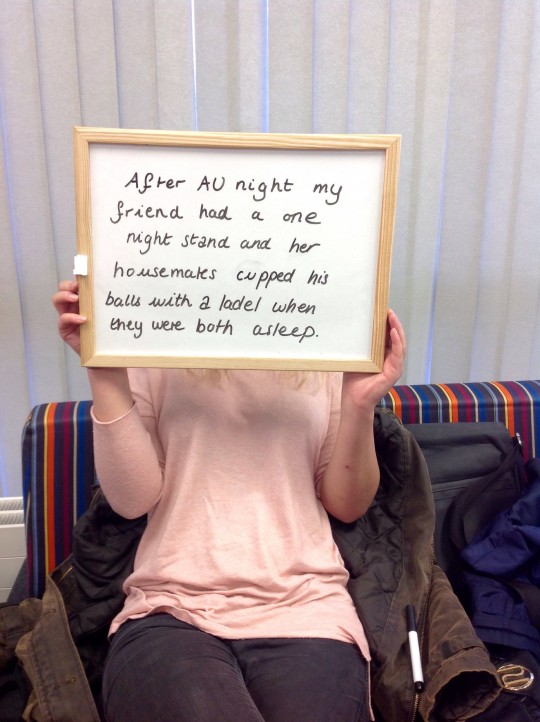 After AU night my
friend had a one
night stand and her
housemates cupped his
balls with a ladel when
they were both asleep.